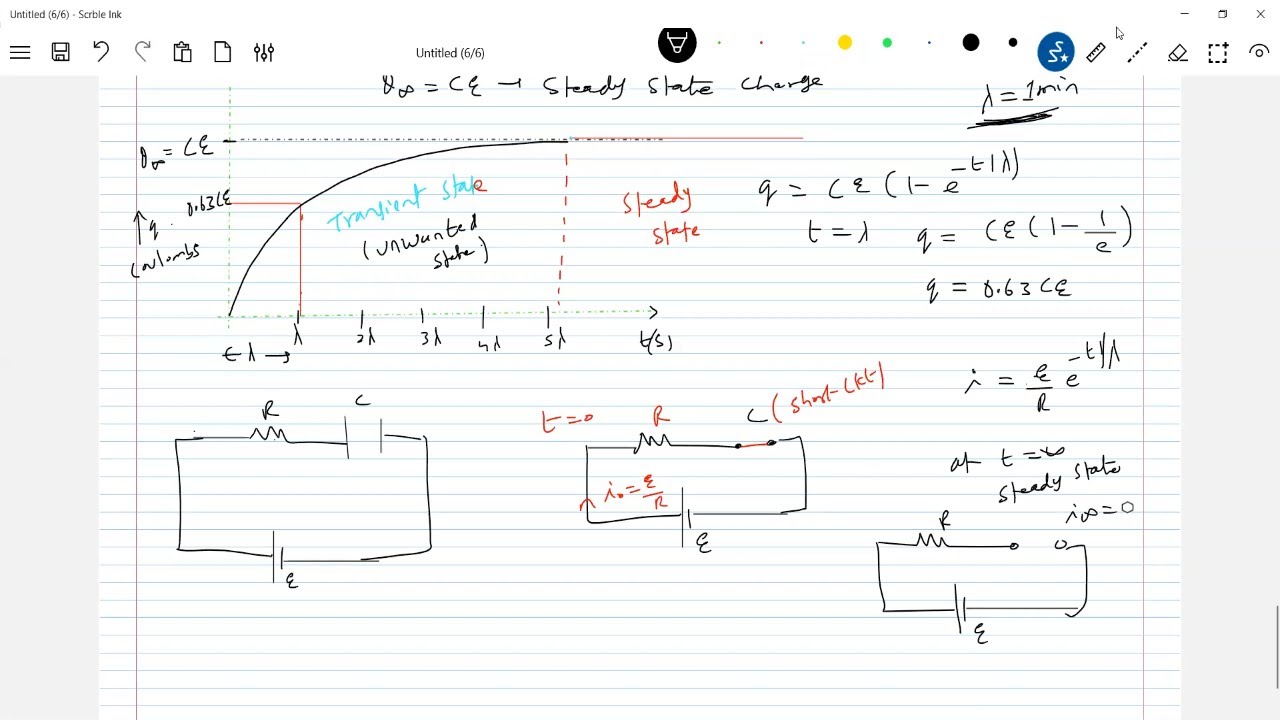 Untitled (6/6) - Scrble Ink
Untitled (6/6)
q∞ = Cε → Steady State Charge
λ = 1min
q∞ = Cε
0.63Cε
↑ q
Coulombs
Transient State
(unwanted
state)
Steady
State
λ 2λ 3λ 4λ 5λ t(s)
← λ →
q = Cε(1 - e^-t/λ)
t = λ q = Cε(1 - 1/e)
q = 0.63Cε
i = ε/R e^-t/λ
R C
ε
t=0 R C (Short-Ckt)
i₀ = ε/R
ε
at t=∞
Steady State
i∞ = 0
R
ε